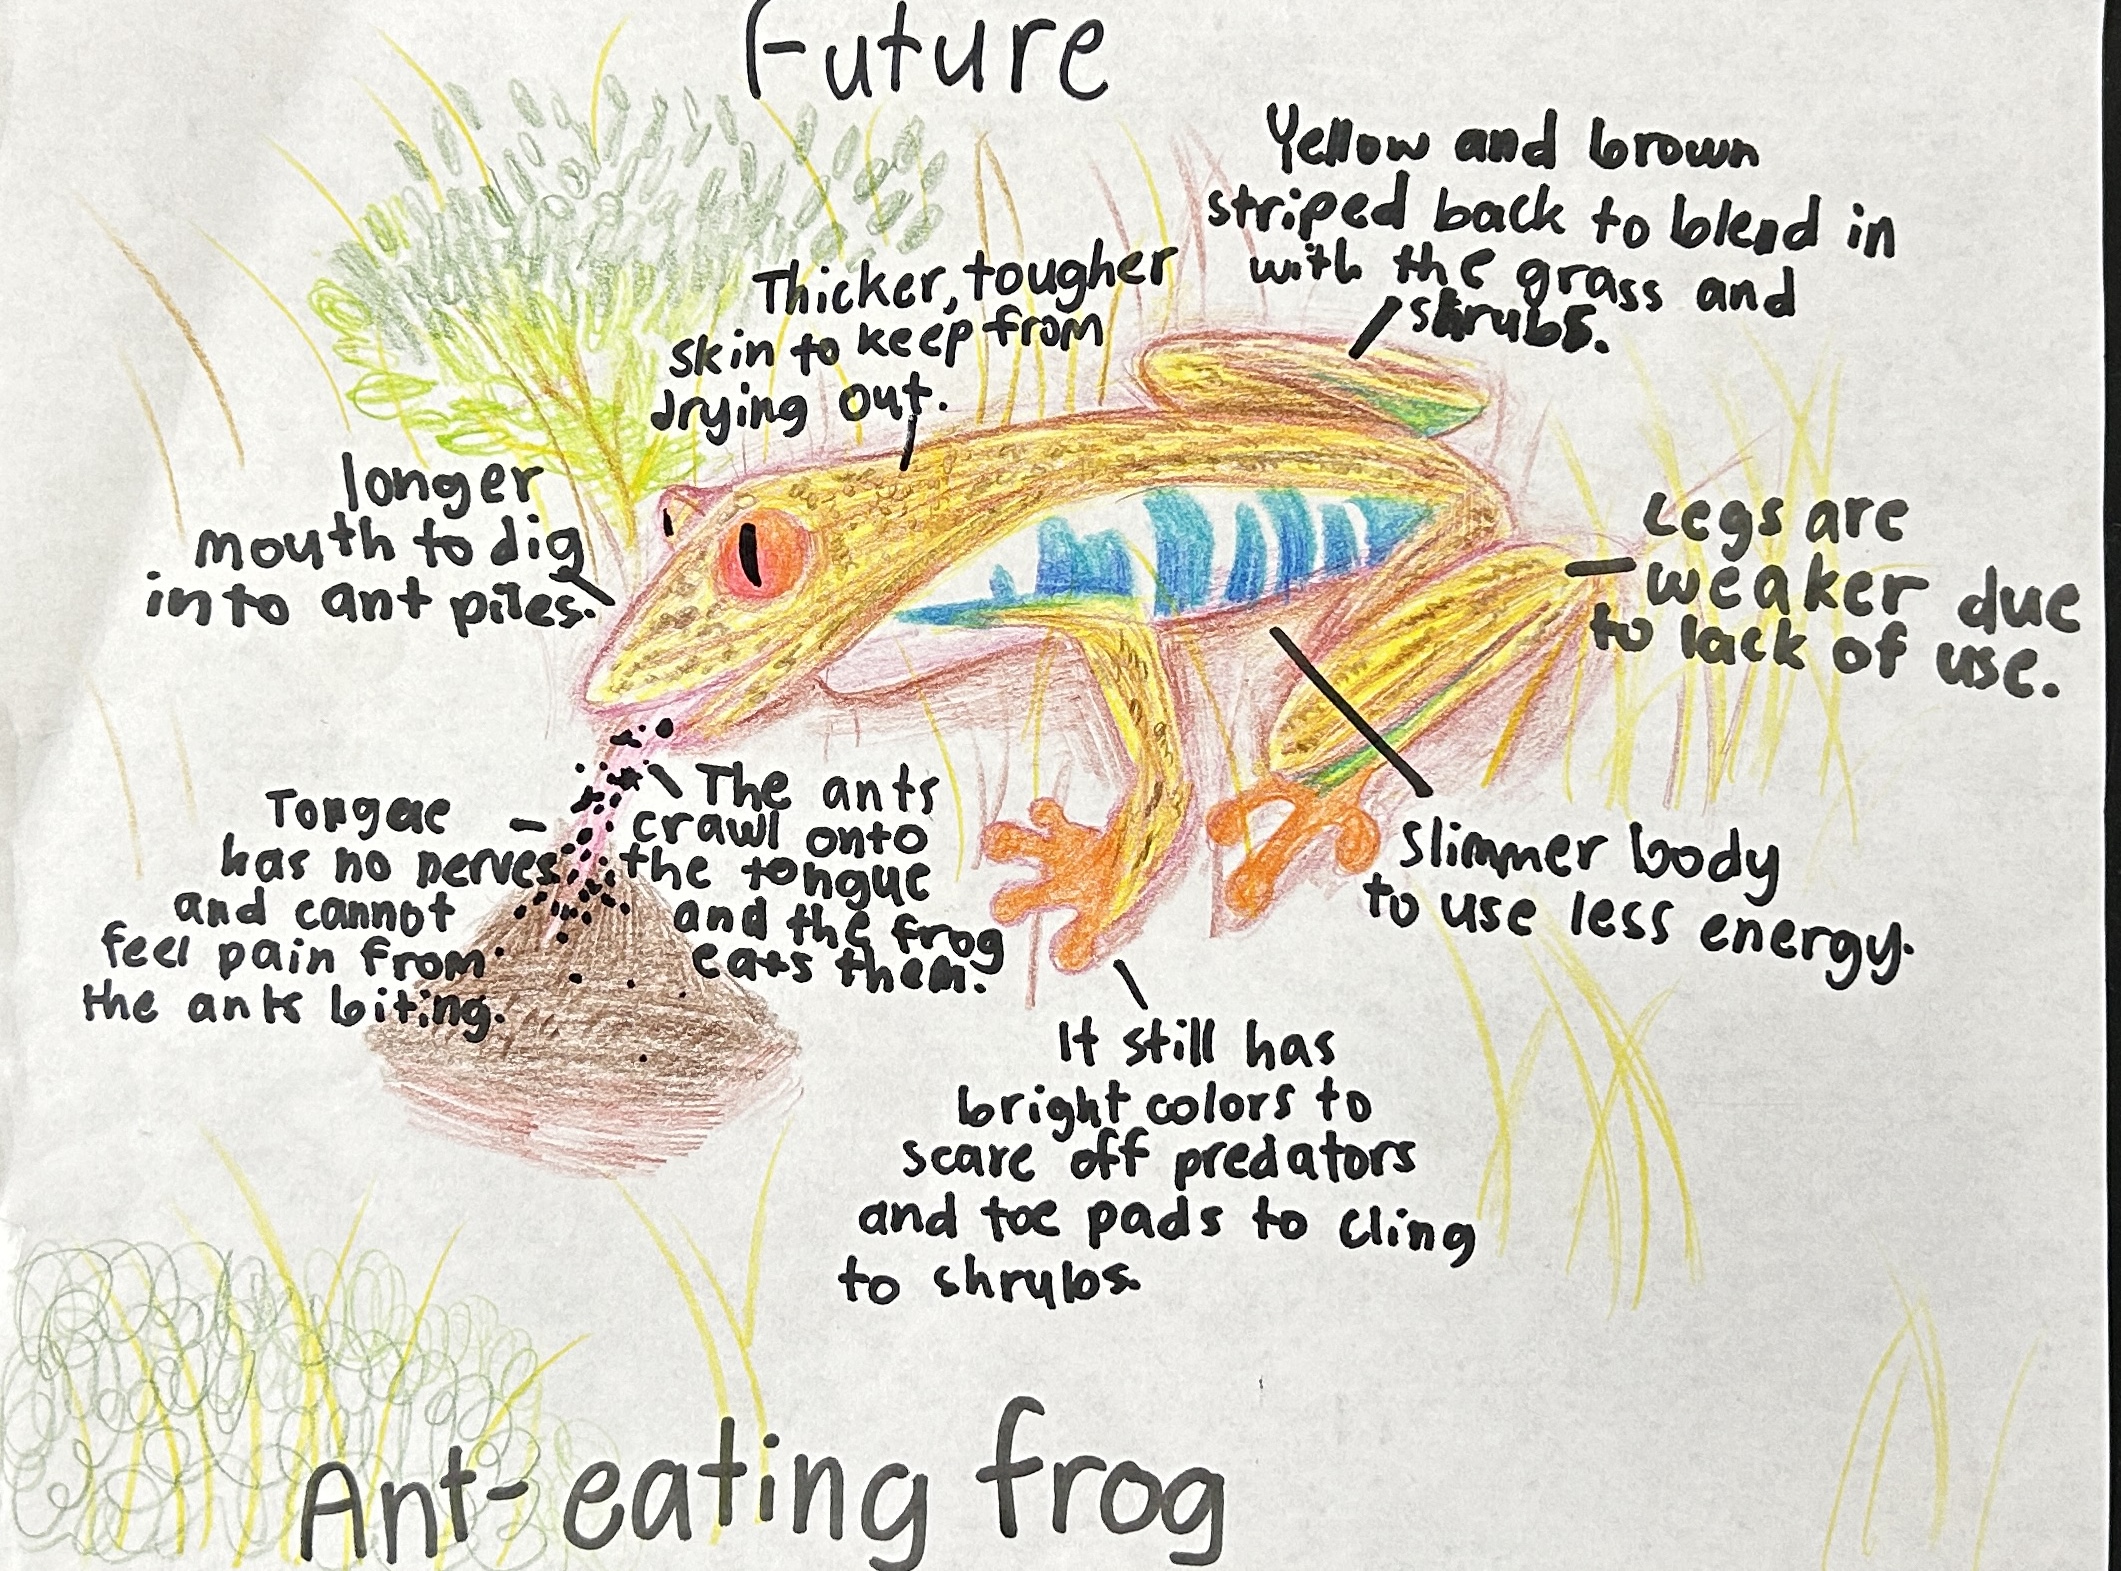 Future
Yellow and brown
striped back to blend in
with the grass and
shrubs.
Thicker, tougher
skin to keep from
drying out.
longer
mouth to dig
into ant piles.
Legs are
weaker due
to lack of use.
Tongue
has no nerves
and cannot
feel pain from
the ants biting.
The ants
crawl onto
the tongue
and the frog
eats them.
Slimmer body
to use less energy.
It still has
bright colors to
scare off predators
and toe pads to cling
to shrubs.
Ant-eating frog